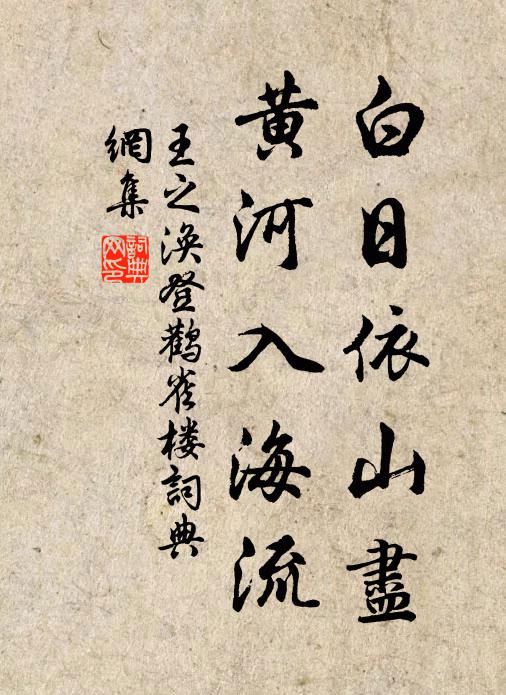 白日依山盡
黄河入海流
王之涣登鹳雀楼詞典
網集
詞典网印